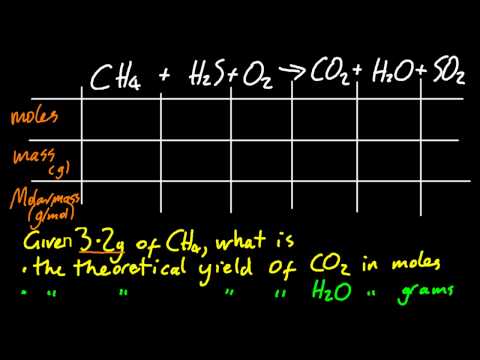 CH₄ + H₂S + O₂ → CO₂ + H₂O + SO₂
moles
mass (g)
Molar mass (g/mol)
Given 3.2g of CH₄, what is
• the theoretical yield of CO₂ in moles
• " " " " H₂O " grams